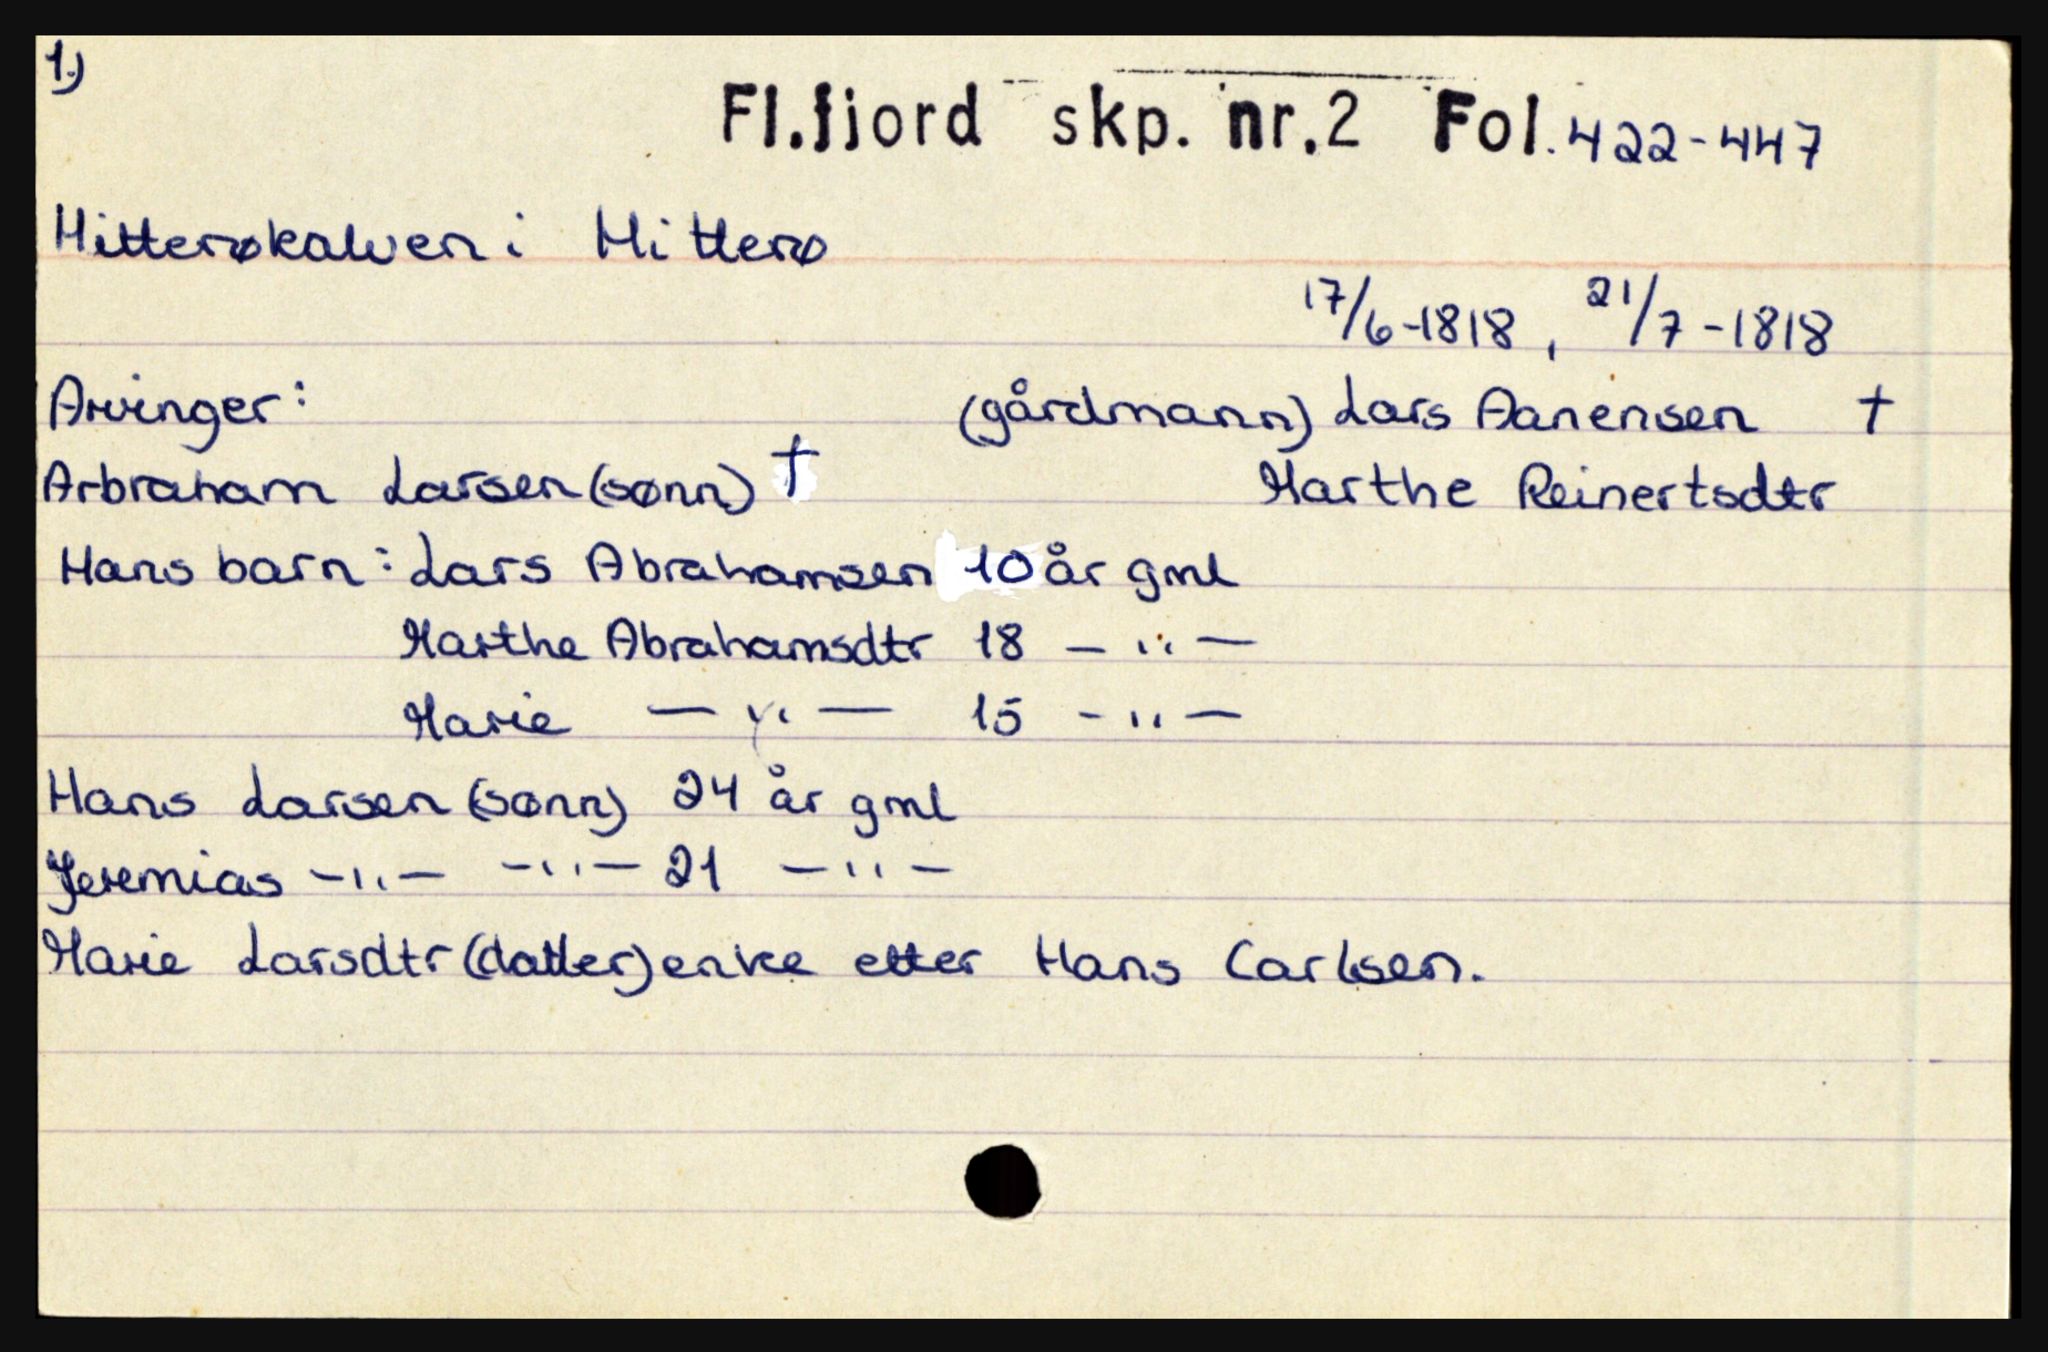 1.)
Fl.fjord skp. nr.2 Fol. 422-447
Hitterøkalven i Hitterø
17/6-1818, 21/7-1818
Arvinger: (gårdmann) Lars Aanensen †
Arbraham Larsen (sønn) † Marthe Reinertsdtr
Hans barn: Lars Abrahamsen 10 år gml
Marthe Abrahamsdtr 18 -"-
Marie -"- 15 -"-
Hans Larsen (sønn) 24 år gml
Jeremias -"- -"- 21 -"-
Marie Larsdtr (datter) enke etter Hans Carlsen.